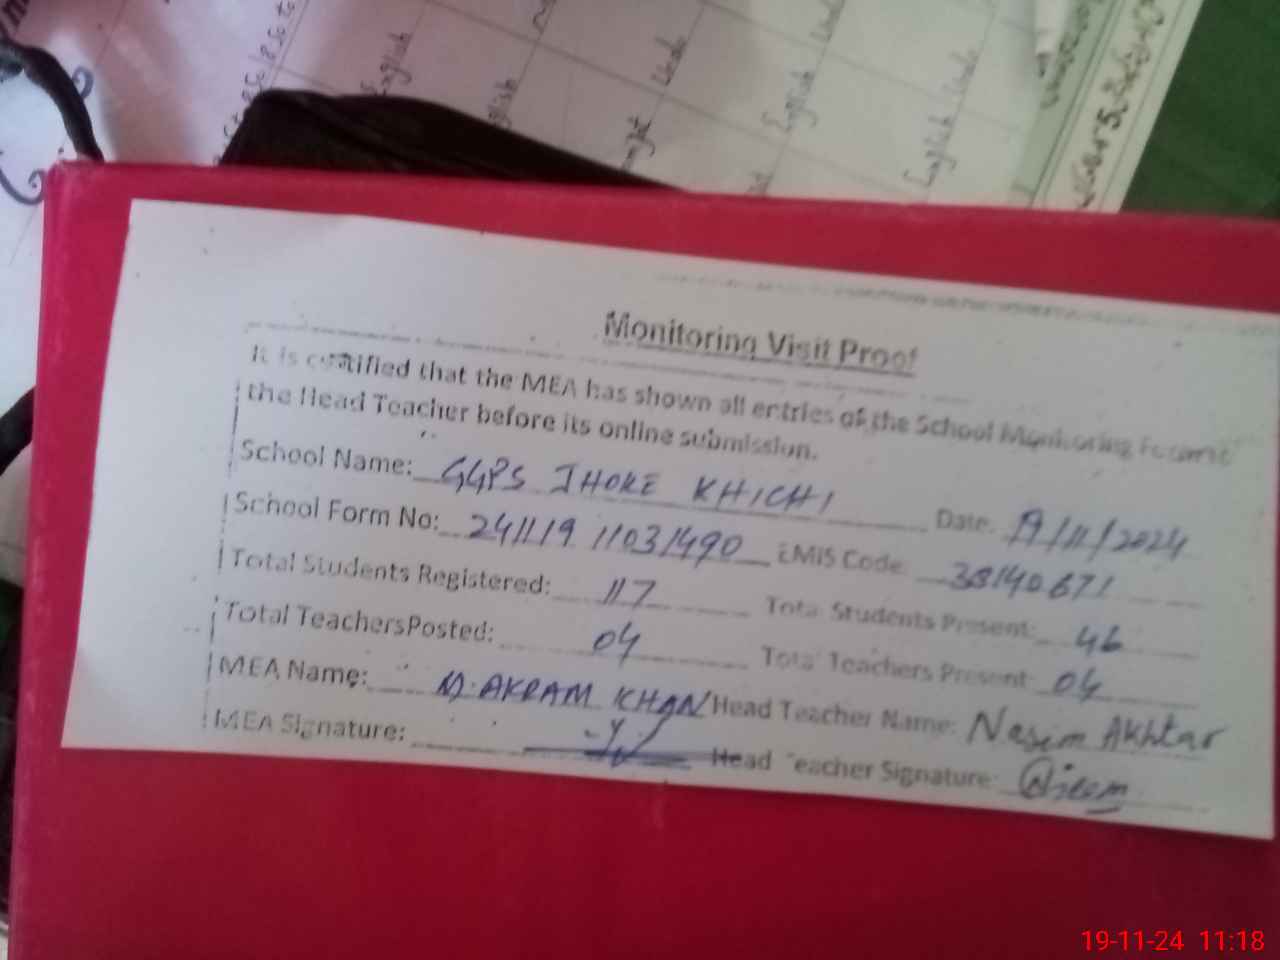 English
English
Urdu
English
Urdu
English
Urdu
Monitoring Visit Proof
It is certified that the MEA has shown all entries of the School Monitoring
the Head Teacher before its online submission.
School Name: GGPS JHOKE KHICHI Date: 19/11/2024
School Form No: 241119 11031490 EMIS Code 38140671
Total Students Registered: 117 Total Students Present: 46
Total TeachersPosted: 04 Total Teachers Present 04
MEA Name: M. AKRAM KHAN Head Teacher Name: Nasim Akhtar
MEA Signature: Head Teacher Signature:
19-11-24 11:18